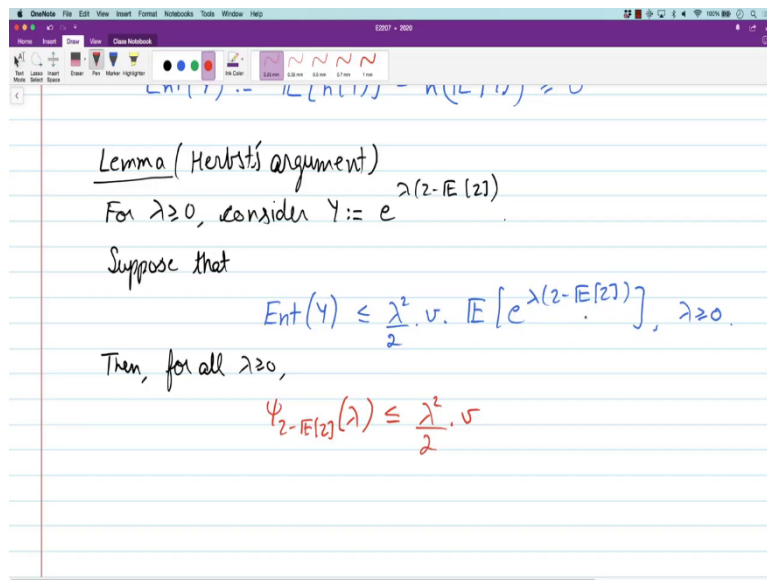 OneNote File Edit View Insert Format Notebooks Tools Window Help 100%
E2207 - 2020
Home Insert Draw View Class Notebook
Text Mode Lasso Select Insert Space Eraser Pen Marker Highlighter Ink Color 0.25 mm 0.35 mm 0.5 mm 0.7 mm 1 mm
Lemma (Herbst's argument)
For λ≥0, consider Y := e^{λ(Z-𝔼[Z])}.
Suppose that
Ent(Y) ≤ λ²/2 . v. 𝔼[e^{λ(Z-𝔼[Z])}], λ≥0.
Then, for all λ≥0,
ψ_{Z-𝔼[Z]}(λ) ≤ λ²/2 . v